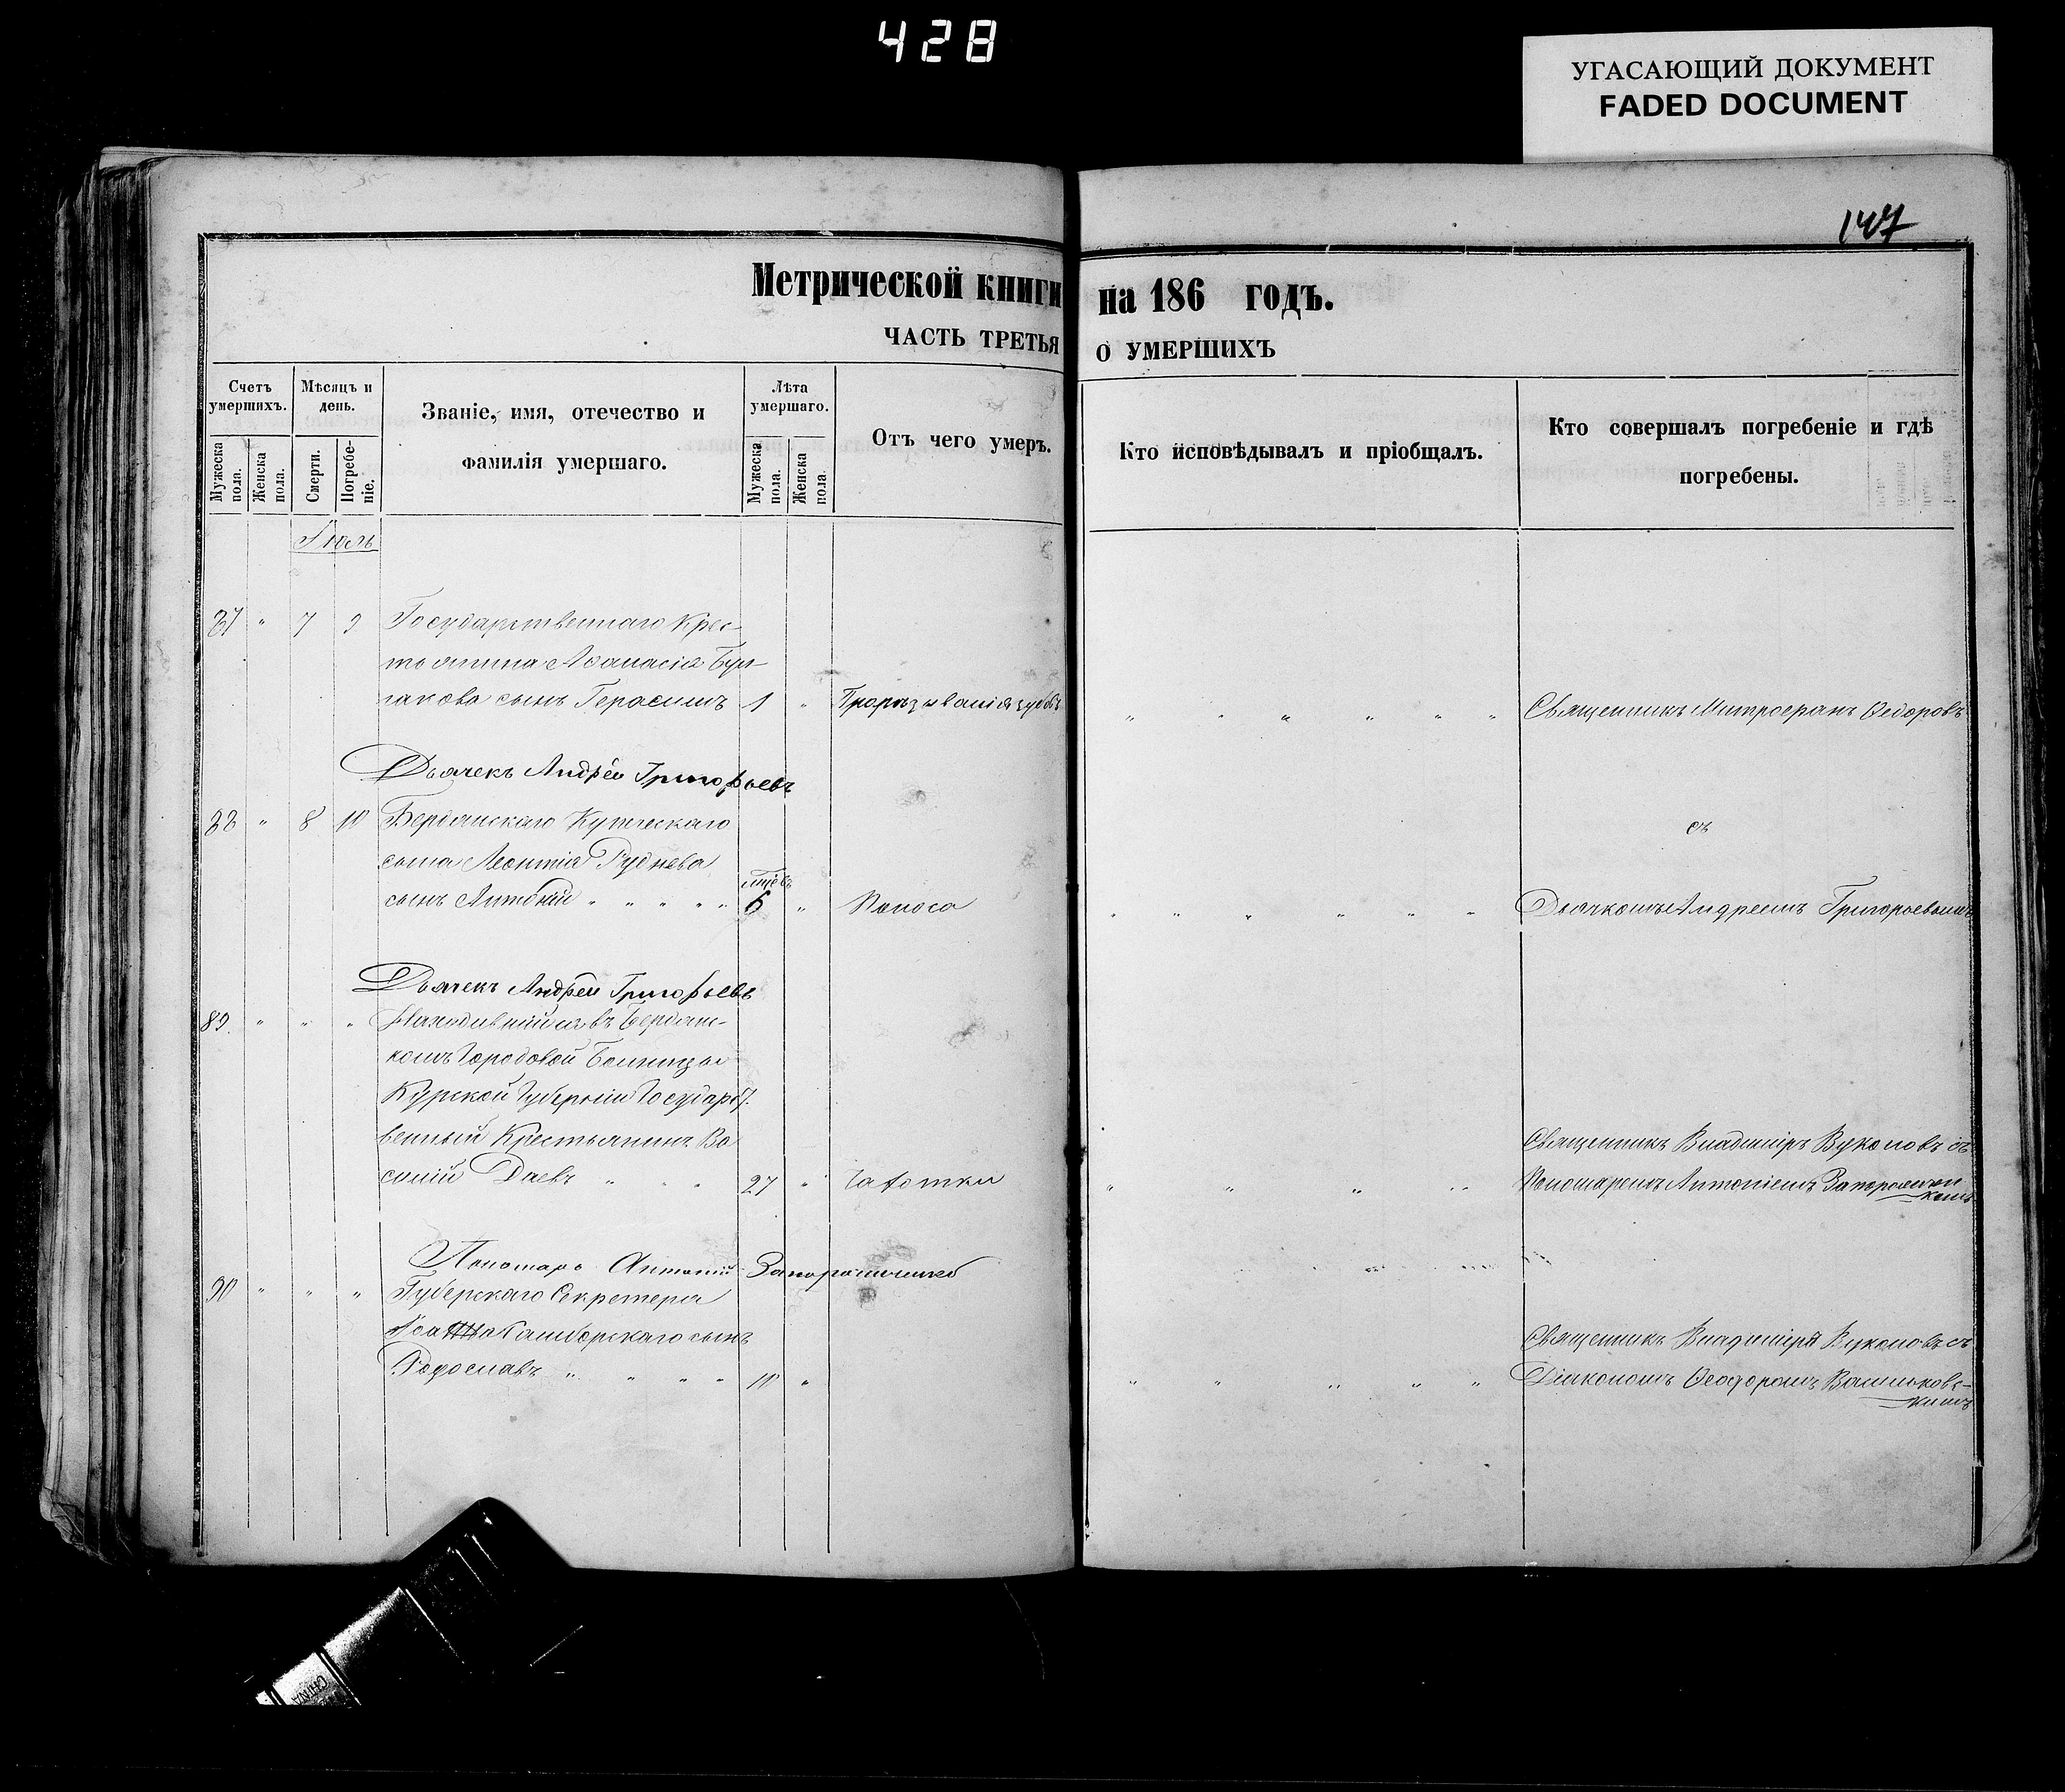 428
УГАСАЮЩИЙ ДОКУМЕНТ
FADED DOCUMENT
147
Метрической книги на 186 годъ.
ЧАСТЬ ТРЕТЬЯ О УМЕРШИХЪ
Счетъ умершихъ.
Мѣсяцъ и день.
Званіе, имя, отечество и фамилія умершаго.
Лѣта умершаго.
Отъ чего умеръ.
Кто исповѣдывалъ и пріобщалъ.
Кто совершалъ погребеніе и гдѣ погребены.
Мужеска пола.
Женска пола.
Смерти.
Погребеніе.
Мужеска пола.
Женска пола.
Іюль
87 " 7 9 Государственнаго Крес-
тьянина Аѳанасія Бул-
гакова сынъ Герасимъ 1 " Прорѣзыванія зубовъ " " " " " " Священникъ Митрофанъ Ѳедоровъ
Дьячекъ Андрей Григорьевъ
88 " 8 10 Бердянскаго Купеческаго съ
сына Леонтія Руднева
сынъ Антоній " " " " " 6 " Поноса " " " " " " Дьячкомъ Андреемъ Григорьевымъ
Дьячекъ Андрей Григорьевъ
89. " " " Находившійся въ Бердянс-
комъ Городовой Больницы
Курской Губерніи Государст-
венный Крестьянинъ Ва Священникъ Владиміръ Вуколовъ съ
силій Даевъ " " " 27 " Чахотки " " " " " Пономаремъ Антоніемъ
Пономарь Антоній
90 " " " Губерскаго Секретера
сынъ Священникъ Владиміръ Вуколовъ съ
" " " " 10 " " " " " " Діякономъ Ѳеодоромъ Васильковс-
кимъ
CHINA